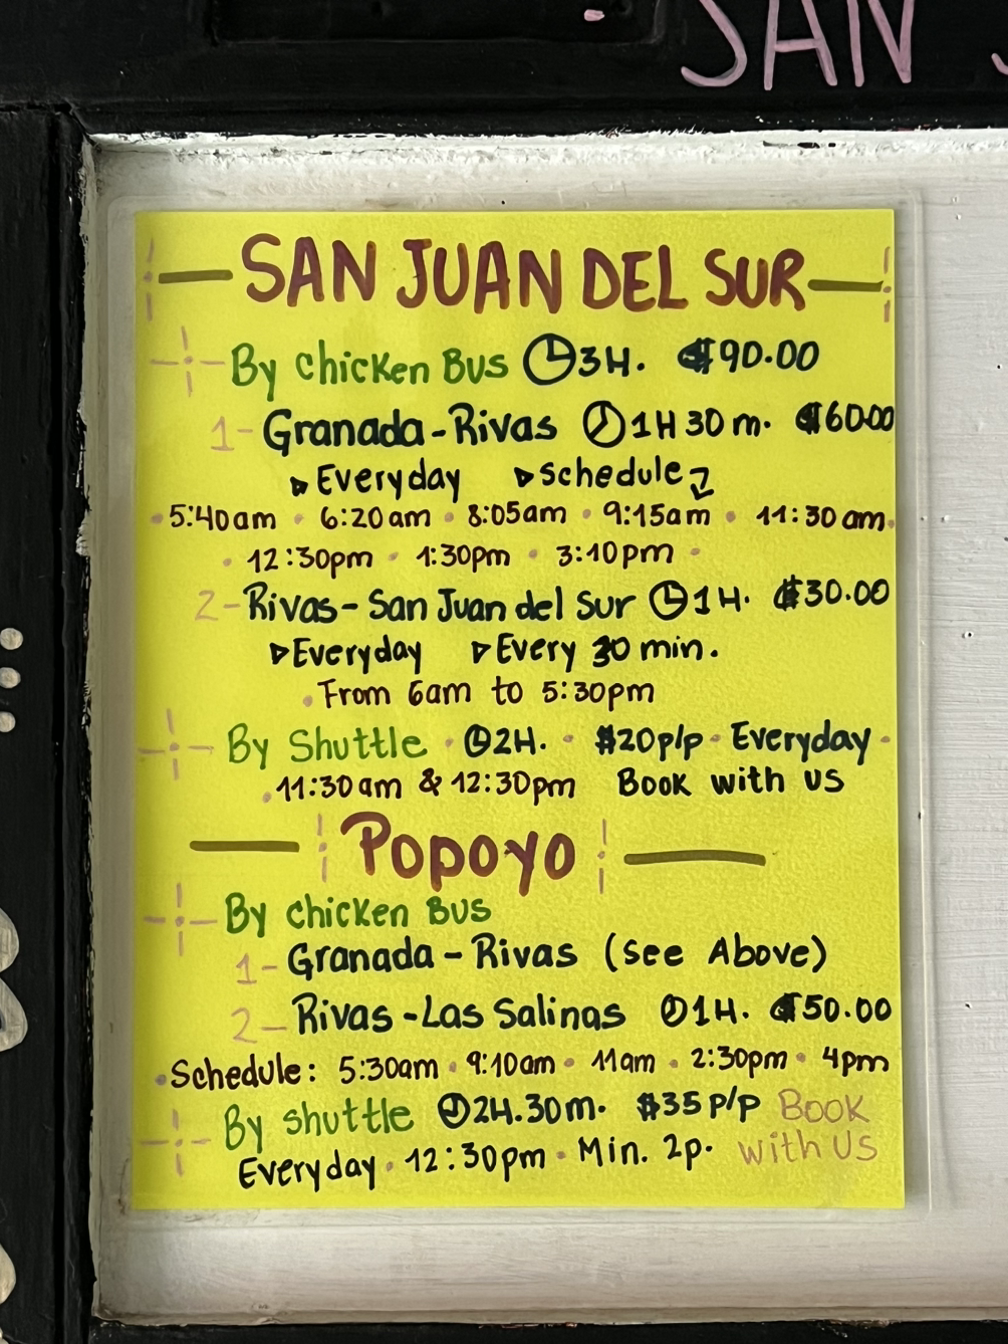 SAN
SAN JUAN DEL SUR
By chicken Bus 3H. ₡90.00
1- Granada-Rivas 1H 30 m. ₡6000
Everyday Schedule
5:40am • 6:20am • 8:05am • 9:15am • 11:30am.
• 12:30pm • 1:30pm • 3:10pm •
2- Rivas-San Juan del Sur 1H. ₡30.00
Everyday Every 30 min.
• From 6am to 5:30pm
By Shuttle • 2H. • $20p/p • Everyday •
• 11:30am & 12:30pm Book with us
Popoyo
By chicken Bus
1- Granada - Rivas (see Above)
2- Rivas -Las Salinas 1H. ₡50.00
• Schedule: 5:30am • 9:10am • 11am • 2:30pm • 4pm
By shuttle 2H.30m. $35 p/p Book
Everyday • 12:30pm • Min. 2p. with us